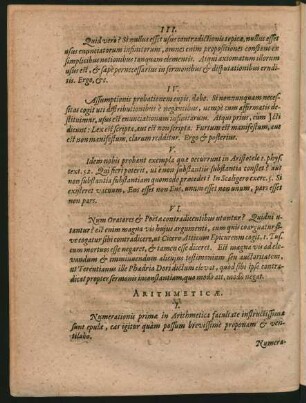 III.
Quid vero? Si nullus esset usus contradictionis topicæ, nullus esset
usus enunciatorum infinitorum, omnes enim propositiones constant ex
simplicibus notionibus tanquam elementis. Atqui automatum illorum
usus est, & sæpè pernecessarius in sermonibus & disputationibus erudi-
tis. Ergo, &c.
IV.
Assumptionis probationem capit. dabo. Si nonnunquam neces-
sitas cogit uti diffinitionibus negativis, ut cùm affirmatis de-
stituimur, usus est enunciationum infinitarum. Atqui prius, cum JCti
dicunt: Lex est scripta, aut est non scripta. Furtum est manifestum, aut
est non manifestum, clarum redditur. Ergo & posterius.
V.
Idem nobis probant exempla quæ occurrunt in Aristotele 1. phys.
text. 52. Qui fieri poterit, ut ex non substantia substantia constet? aut
non substantia substantiam quomodo præcedet? In Scaligero exerc. 5. Si
existeret vacuum, Ens esset non Ens, unum esset non unum, pars esset
non pars.
VI.
Num Oratores & Poëtæ contradicentibus utuntur? Quidni u-
tantur? est enim magna vis hujus argumenti, cum quis coarguitur si-
ve cogatur sibi contradicere, ut Cicero Atticum Epicureum cogit. 1. Tus-
cum mortuos esse negaret, & tamen esse diceret. Est magna vis ad ele-
vandum & imminuendum alicujus testimonium seu authoritatem,
ut Terentianus ille Phædria Dori dictum elevat, quod sibi ipse contra-
dicat propter sermonis inconstantiam qua modò ait, modò negat.
ARITHMETICÆ.
I.
Numerationis primæ in Arithmetica facultate instructissima
sunt epula, car igitur quàm possum brevissimè proponam & ven-
tilabo.
Numera-